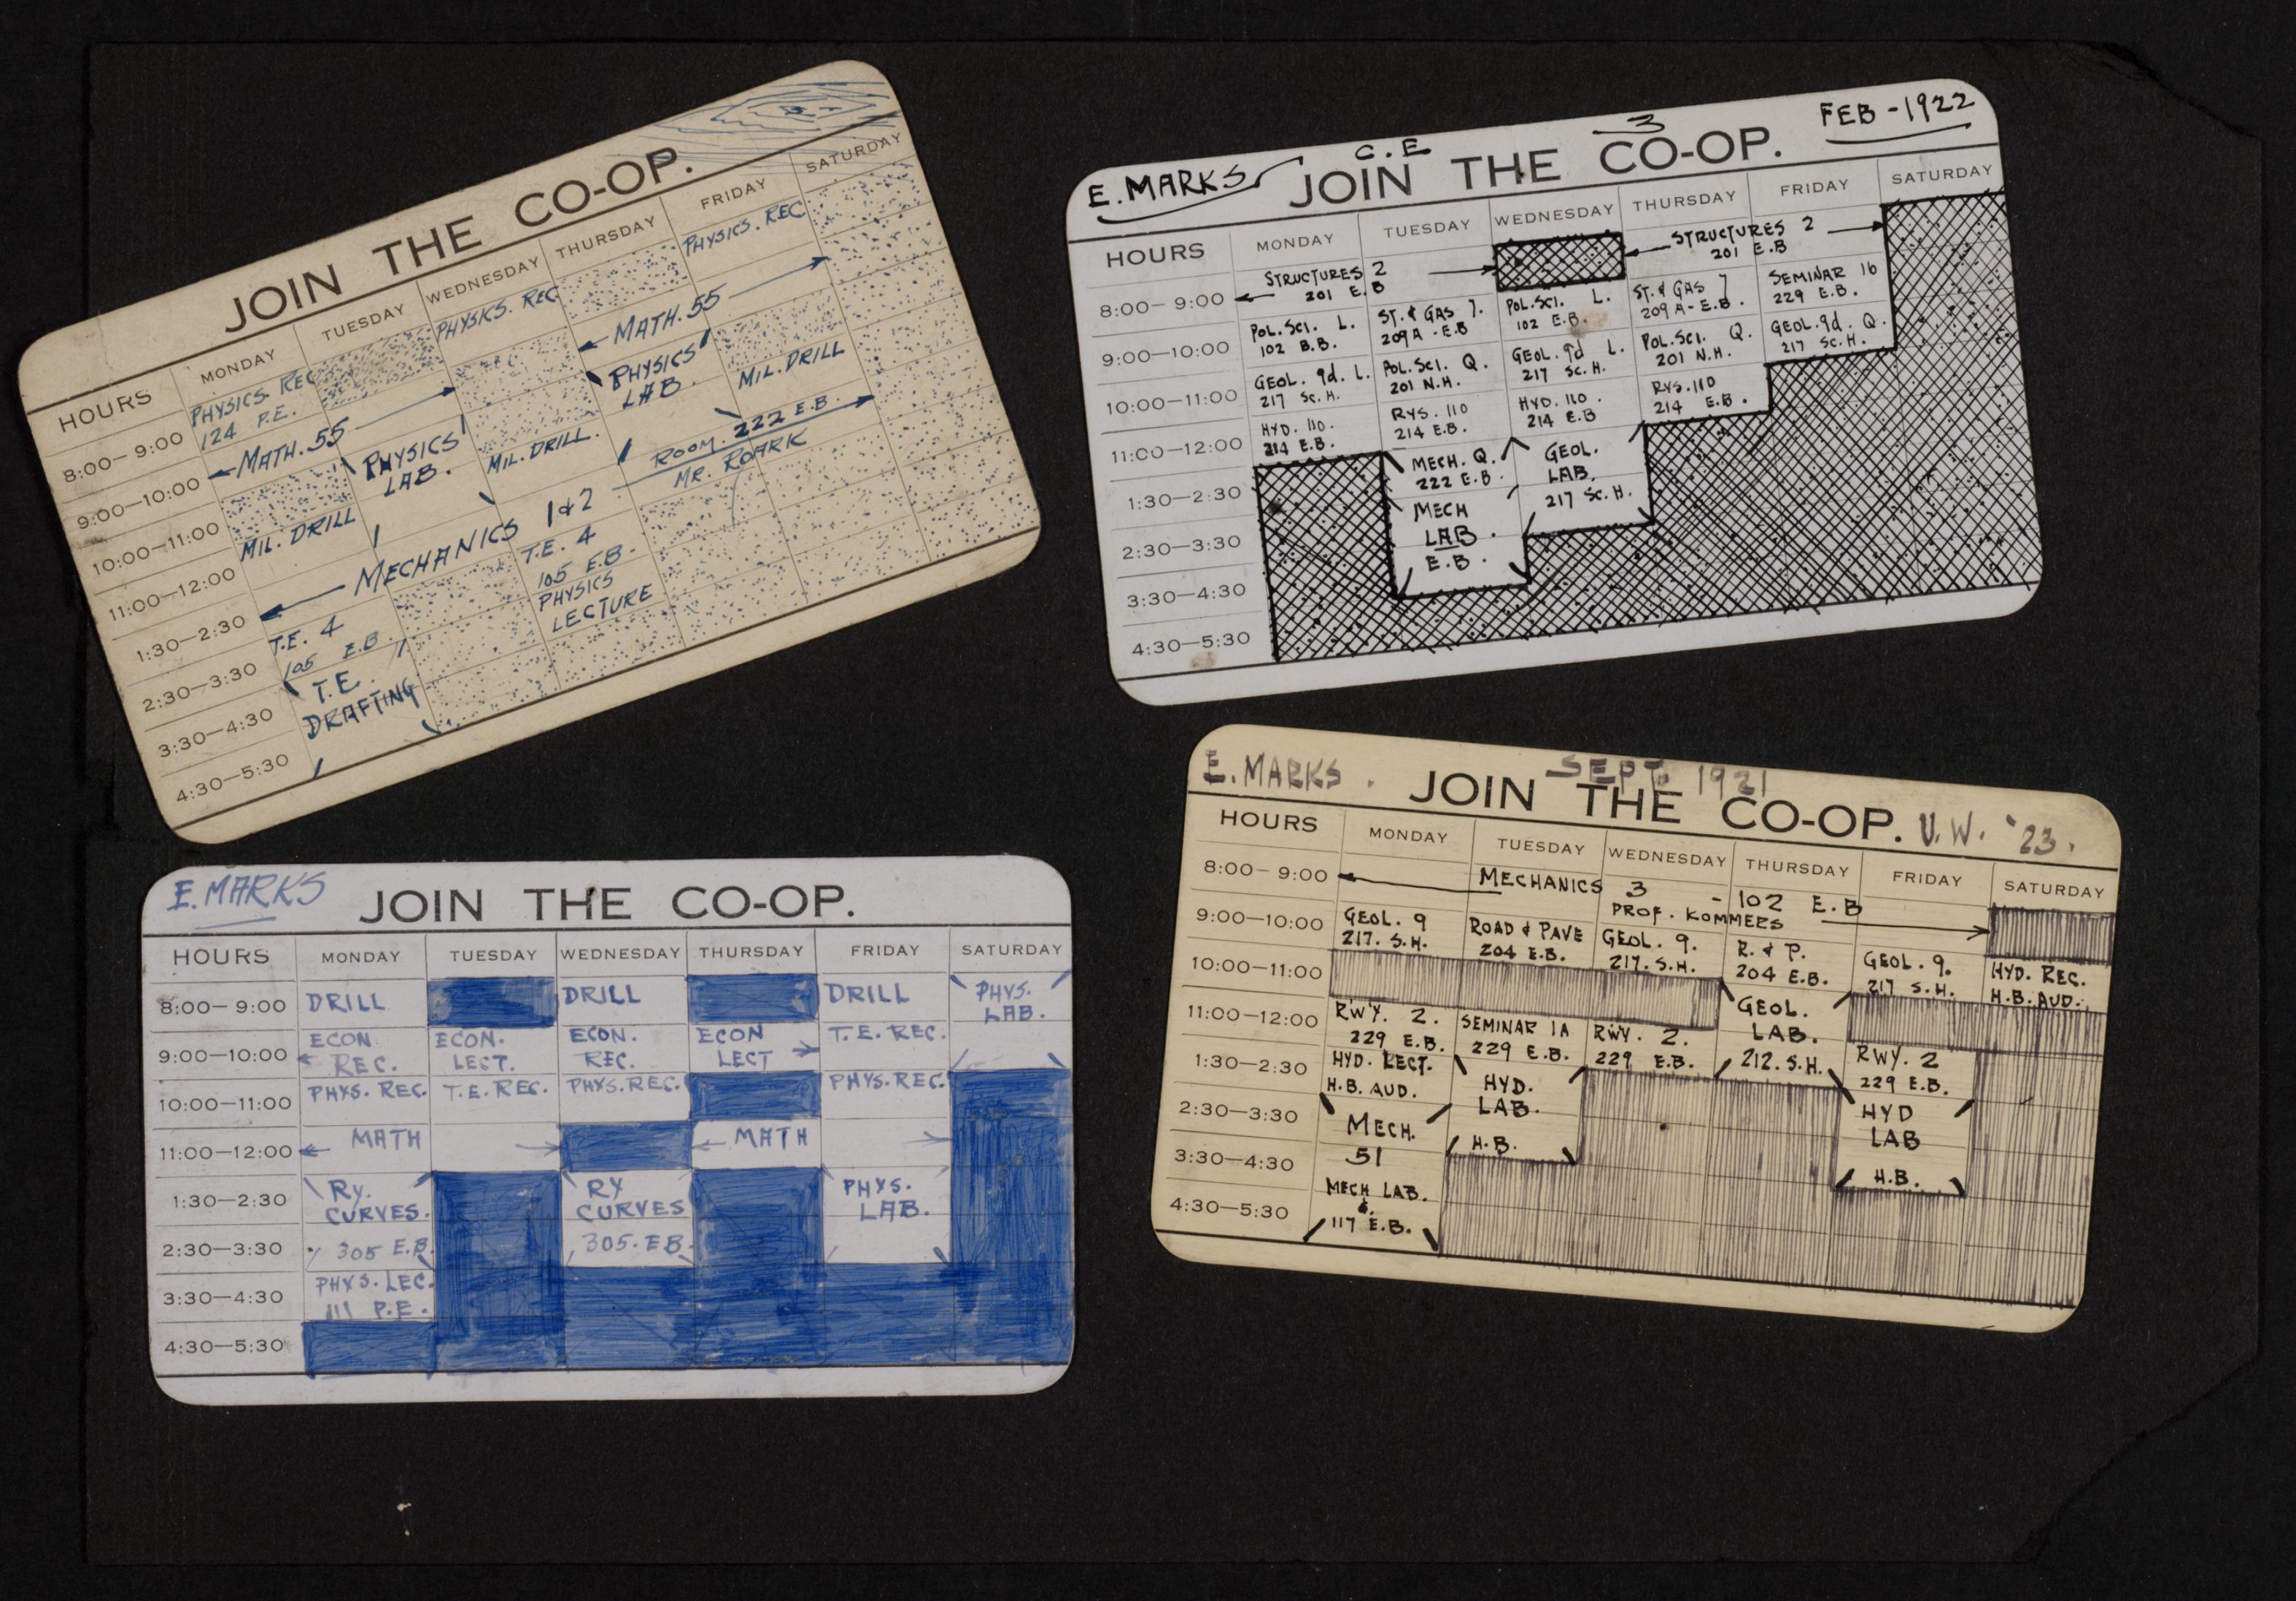 JOIN THE CO-OP.
HOURS MONDAY TUESDAY WEDNESDAY THURSDAY FRIDAY SATURDAY
8:00–9:00 PHYSICS. REC 124 P.E. PHYSICS. REC PHYSICS. REC
9:00–10:00 MATH. 55 MATH. 55
10:00–11:00 PHYSICS LAB. PHYSICS LAB.
11:00–12:00 MIL. DRILL MIL. DRILL. MIL. DRILL
1:30–2:30 MECHANICS 1 & 2 ROOM. 222 E.B.
MR. ROARK
2:30–3:30 T.E. 4 105 E.B. T.E. 4 105 E.B.
3:30–4:30 T.E. DRAFTING PHYSICS LECTURE
4:30–5:30
E. MARKS C.E 3 FEB - 1922
JOIN THE CO-OP.
HOURS MONDAY TUESDAY WEDNESDAY THURSDAY FRIDAY SATURDAY
8:00–9:00 STRUCTURES 2 STRUCTURES 2
201 E.B 201 E.B
9:00–10:00 POL. SCI. L. ST. & GAS 7. POL. SCI. L. ST. & GAS 7 SEMINAR 16
102 B.B. 209A - E.B 102 E.B. 209 A - E.B. 229 E.B.
10:00–11:00 GEOL. 9d. L. POL. SCI. Q. GEOL. 9d L. POL. SCI. Q. GEOL. 9d. Q.
217 SC. H. 201 N.H. 217 SC. H. 201 N.H. 217 SC. H.
11:00–12:00 HYD. 110. RYS. 110 HYD. 110. RYS. 110
214 E.B. 214 E.B. 214 E.B 214 E.B.
1:30–2:30 MECH. Q. GEOL.
222 E.B. LAB.
2:30–3:30 MECH 217 SC. H.
LAB.
3:30–4:30 E.B.
4:30–5:30
E. MARKS
JOIN THE CO-OP.
HOURS MONDAY TUESDAY WEDNESDAY THURSDAY FRIDAY SATURDAY
8:00–9:00 DRILL DRILL DRILL PHYS.
LAB.
9:00–10:00 ECON ECON. ECON. ECON T.E. REC.
REC. LECT. REC. LECT
10:00–11:00 PHYS. REC. T.E. REC. PHYS. REC. PHYS. REC.
11:00–12:00 MATH MATH
1:30–2:30 RY. RY PHYS.
CURVES. CURVES LAB.
2:30–3:30 305 E.B. 305. EB
3:30–4:30 PHYS. LEC.
111 P.E.
4:30–5:30
E. MARKS. SEPT. 1921
JOIN THE CO-OP. U.W. '23.
HOURS MONDAY TUESDAY WEDNESDAY THURSDAY FRIDAY SATURDAY
8:00–9:00 MECHANICS 3 - 102 E.B
PROF. KOMMERS
9:00–10:00 GEOL. 9 ROAD & PAVE GEOL. 9. R. & P. GEOL. 9. HYD. REC.
217. S.H. 204 E.B. 217. S.H. 204 E.B. 217 S.H. H.B. AUD.
10:00–11:00 GEOL.
LAB.
11:00–12:00 RWY. 2. SEMINAR 1A RWY. 2. 212. S.H. RWY. 2
229 E.B. 229 E.B. 229 E.B. 229 E.B.
1:30–2:30 HYD. LECT. HYD. HYD
H.B. AUD. LAB. LAB
2:30–3:30 MECH. H.B. H.B.
3:30–4:30 51
4:30–5:30 MECH LAB.
&
117 E.B.